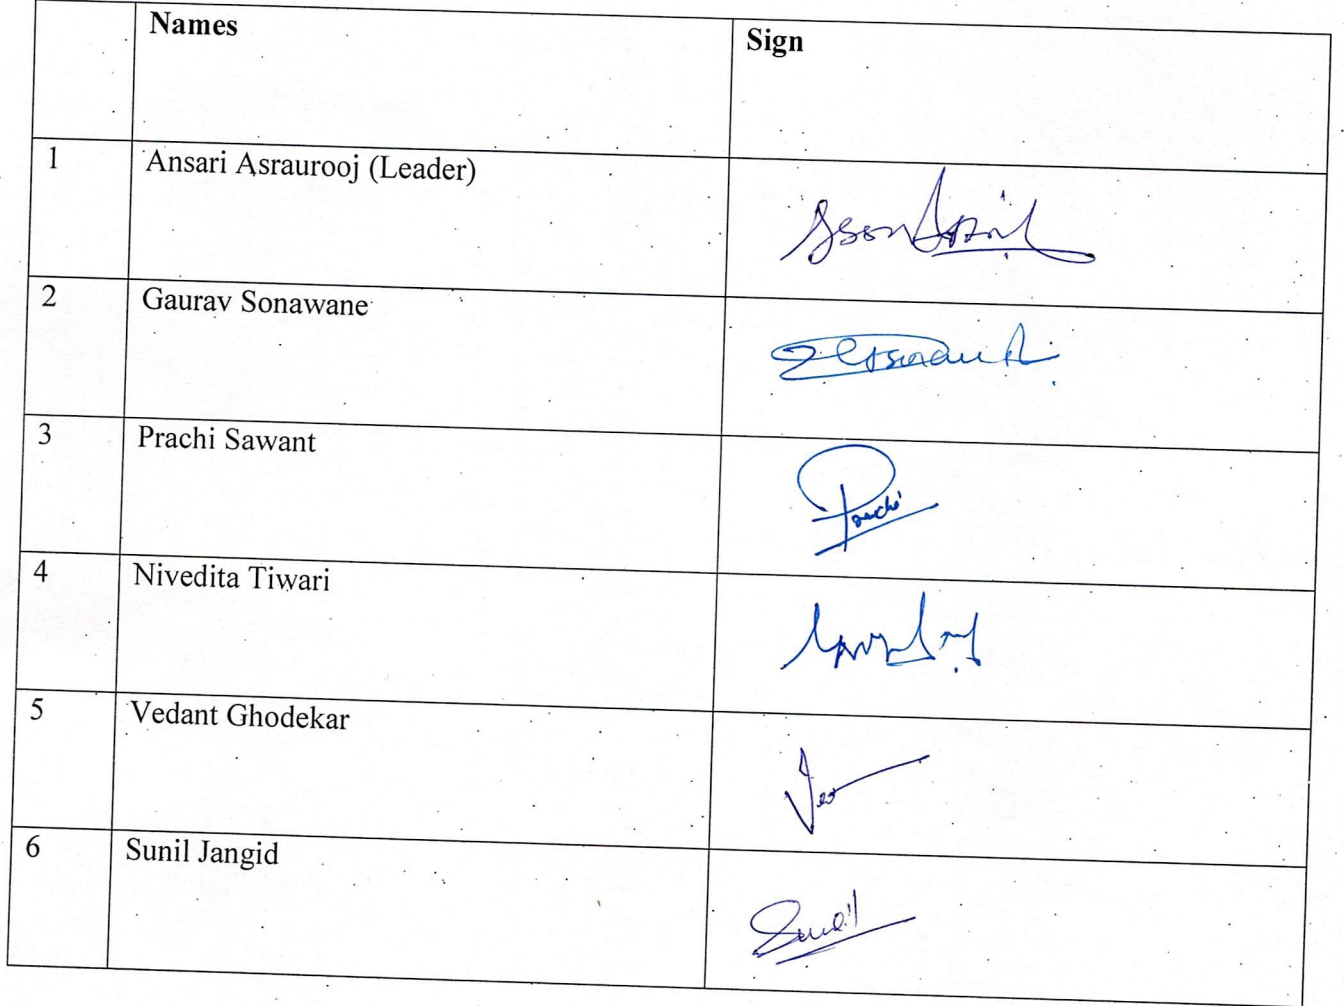 Names Sign
1 Ansari Asraurooj (Leader)
2 Gaurav Sonawane
3 Prachi Sawant Prachi
4 Nivedita Tiwari
5 Vedant Ghodekar
6 Sunil Jangid Sunil